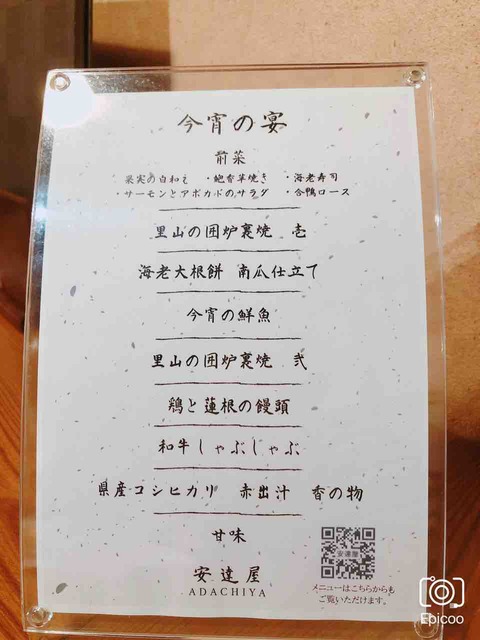 今宵の宴
前菜
果実の白和え ・鮑香草焼き ・海老寿司
・サーモンとアボカドのサラダ ・合鴨ロース
里山の囲炉裏焼 壱
海老大根餅 南瓜仕立て
今宵の鮮魚
里山の囲炉裏焼 弐
鶏と蓮根の饅頭
和牛しゃぶしゃぶ
県産コシヒカリ 赤出汁 香の物
甘味
安達屋
メニューはこちらからも
ご覧いただけます。
安達屋
ADACHIYA
Epicoo